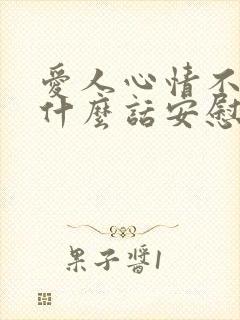 愛人心情不
什麼話安慰
果子醬1